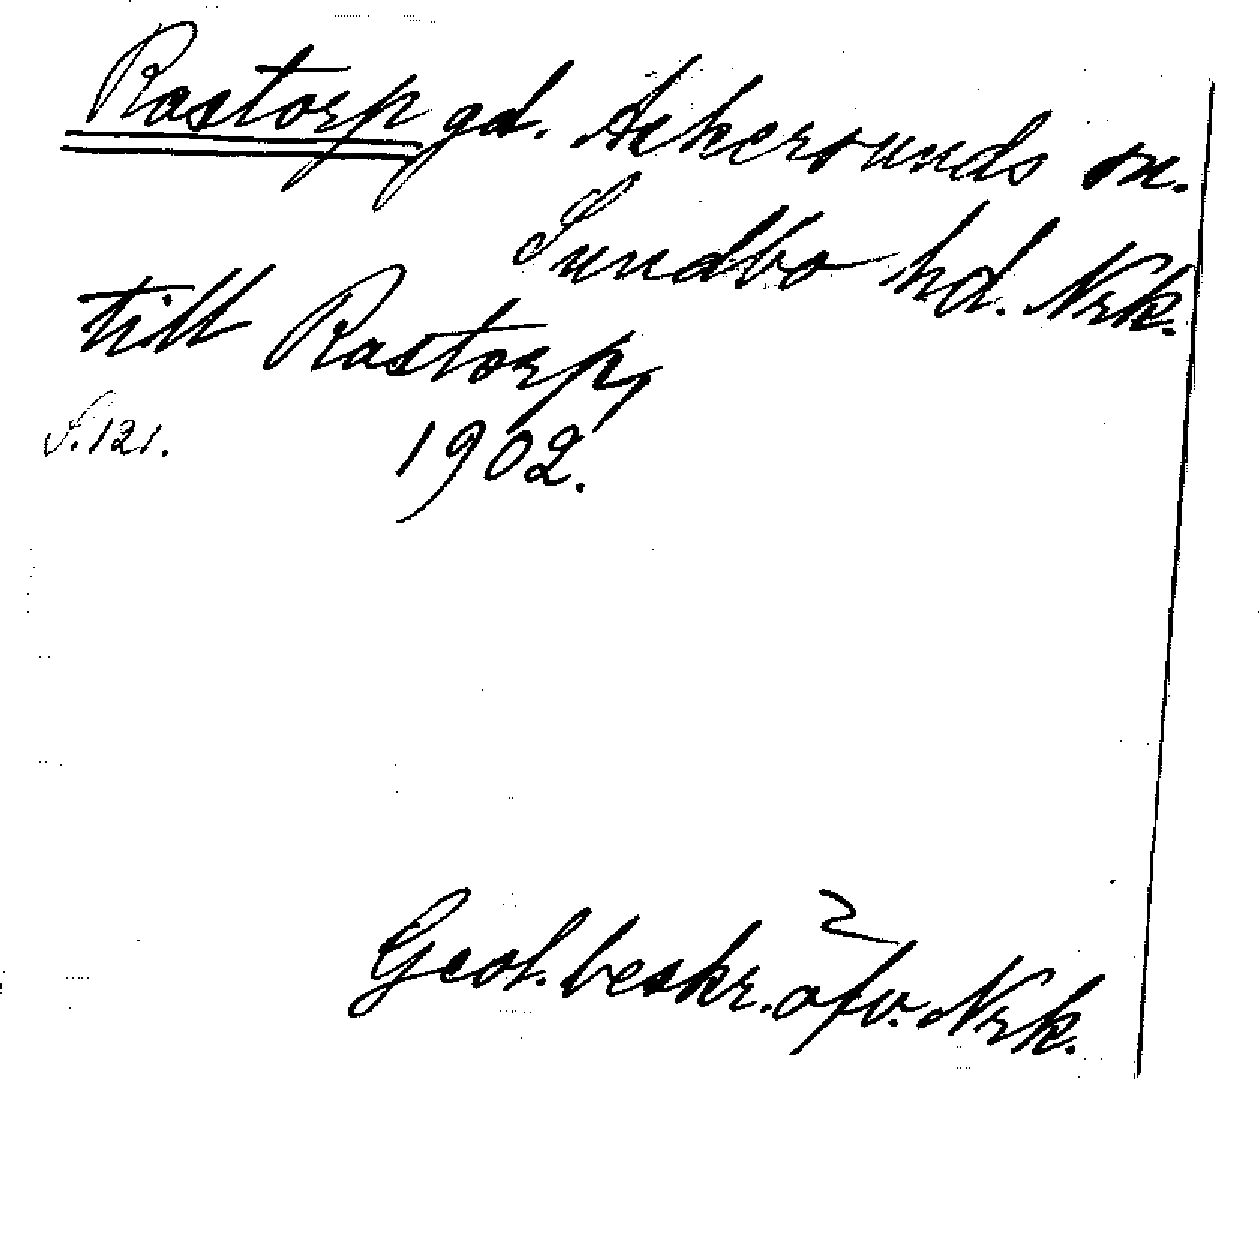 Rastorp gd. Askersunds sn.
Sundbo hd. Nrk.
till Rastorp,
S. 121. 1902.
Geol. beskr. öfv. Nrk.